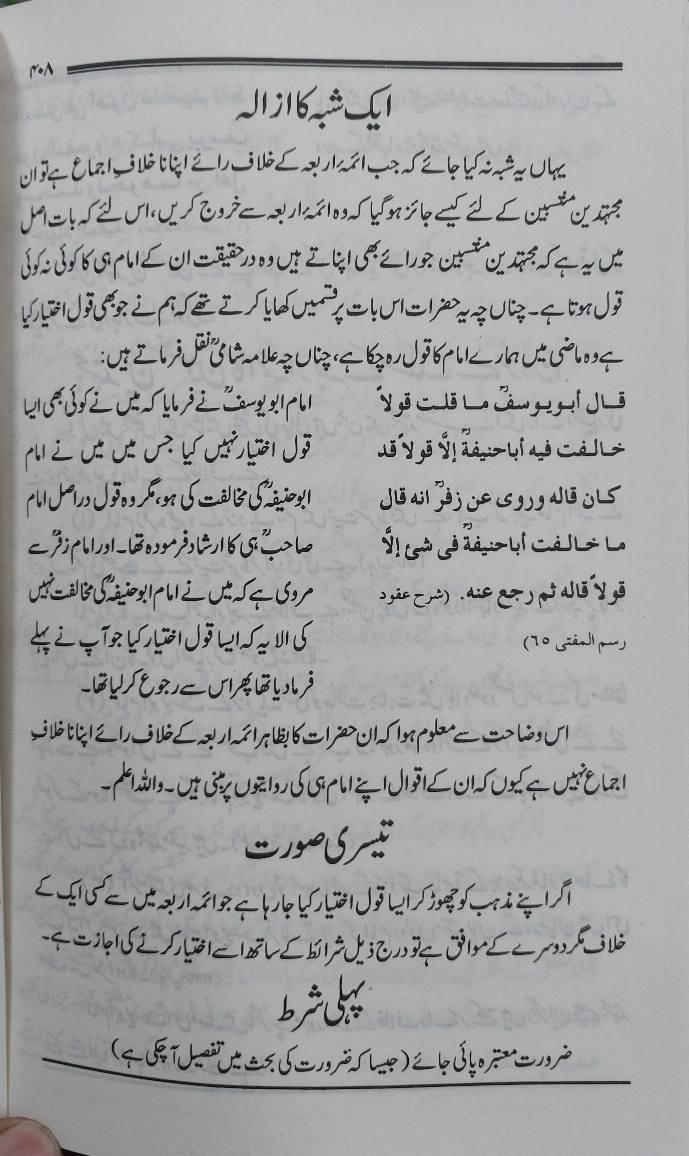 ۴۰۸
ایک شبہ کا ازالہ
یہاں یہ شبہ نہ کیا جائے کہ جب ائمۂ اربعہ کے خلاف رائے اپنانا خلافِ اجماع ہے تو ان
مجتہدین منتسبین کے لئے کیسے جائز ہوگیا کہ وہ ائمۂ اربعہ سے خروج کریں، اس لئے کہ بات اصل
میں یہ ہے کہ مجتہدین منتسبین جو رائے بھی اپناتے ہیں وہ درحقیقت ان کے امام ہی کا کوئی نہ کوئی
قول ہوتا ہے۔ چناں چہ یہ حضرات اس بات پر قسمیں کھایا کرتے تھے کہ ہم نے جو بھی قول اختیار کیا
ہے وہ ماضی میں ہمارے امام کا قول رہ چکا ہے، چناں چہ علامہ شامیؒ نقل فرماتے ہیں:
قال أبويوسفؒ ما قلت قولاً
خالفت فيه أباحنيفةؒ إلَّا قولاً قد
كان قاله وروى عن زفرؒ انه قال
ما خالفت أباحنيفةؒ فى شئ إلَّا
قولاً قاله ثم رجع عنه. (شرح عقود
رسم المفتى ٦٥)
امام ابو یوسفؒ نے فرمایا کہ میں نے کوئی بھی ایسا
قول اختیار نہیں کیا جس میں میں نے امام
ابوحنیفہؒ کی مخالفت کی ہو، مگر وہ قول دراصل امام
صاحبؒ ہی کا ارشاد فرمودہ تھا۔ اور امام زفرؒ سے
مروی ہے کہ میں نے امام ابوحنیفہؒ کی مخالفت نہیں
کی الا یہ کہ ایسا قول اختیار کیا جو آپ نے پہلے
فرمادیا تھا پھر اس سے رجوع کرلیا تھا۔
اس وضاحت سے معلوم ہوا کہ ان حضرات کا بظاہر ائمہ اربعہ کے خلاف رائے اپنانا خلافِ
اجماع نہیں ہے کیوں کہ ان کے اقوال اپنے امام ہی کی روایتوں پر مبنی ہیں۔ واللہ اعلم۔
تیسری صورت
اگر اپنے مذہب کو چھوڑ کر ایسا قول اختیار کیا جارہا ہے جو ائمہ اربعہ میں سے کسی ایک کے
خلاف مگر دوسرے کے موافق ہے تو درج ذیل شرائط کے ساتھ اسے اختیار کرنے کی اجازت ہے۔
پہلی شرط
ضرورت معتبرہ پائی جائے (جیسا کہ ضرورت کی بحث میں تفصیل آچکی ہے)